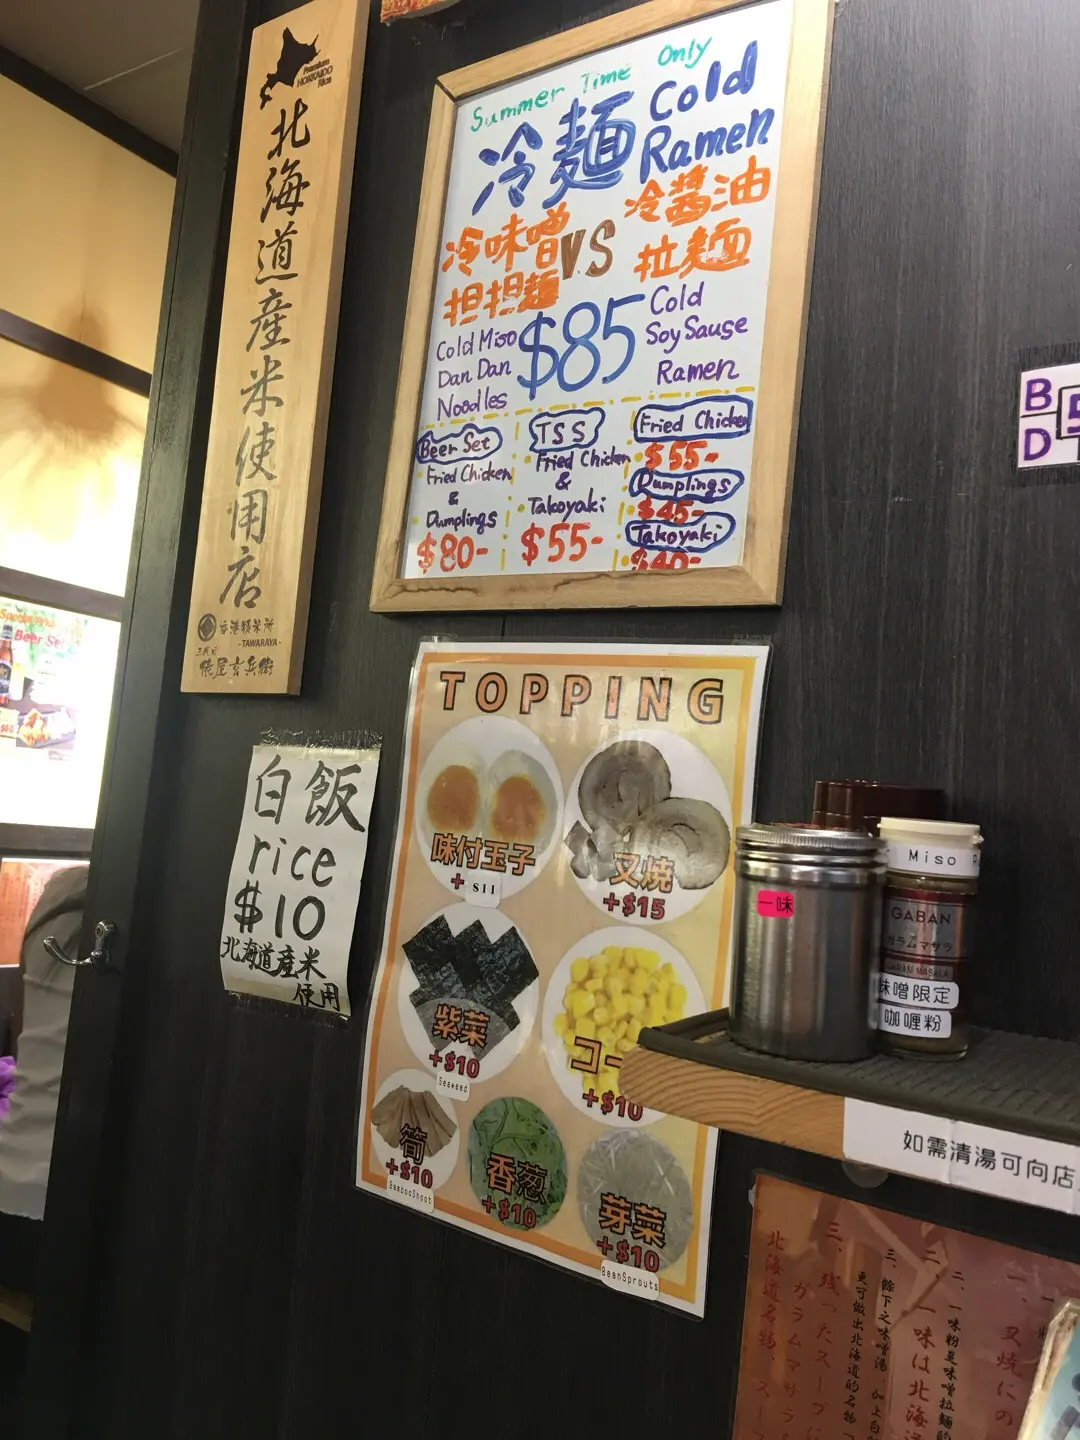 Premium
HOKKAIDO
Rice
北海道産米使用店
香港精米所
-TAWARAYA-
三代目
俵屋玄兵衛
Summer Time Only
冷麵
Cold
Ramen
冷味噌
担担麵
VS
冷醬油
拉麵
Cold Miso
Dan Dan
Noodles
$85
Cold
Soy Sause
Ramen
Beer Set
Fried Chicken
&
Dumplings
$80-
TSS
Fried Chicken
&
Takoyaki
$55-
Fried Chicken
$55-
Dumplings
$45-
Takoyaki
$40-
B
D
Beer Set
白飯
rice
$10
北海道産米
使用
TOPPING
味付玉子
+$11
叉焼
+$15
紫菜
+$10
Seaweed
コー
+$10
筍
+$10
BambooShoot
香葱
+$10
芽菜
+$10
BeanSprouts
一味
Miso
GABAN
ガラムマサラ
GARAM MASALA
味噌限定
咖喱粉
如需清湯可向店
一、叉焼にの
二、一味粉是味噌拉麵的
二、一味は北海
三、餘下之味噌湯，加上白飯
更可做出北海道的名物
三、残ったスープに
ガラムマサラ
北海道名物、スー